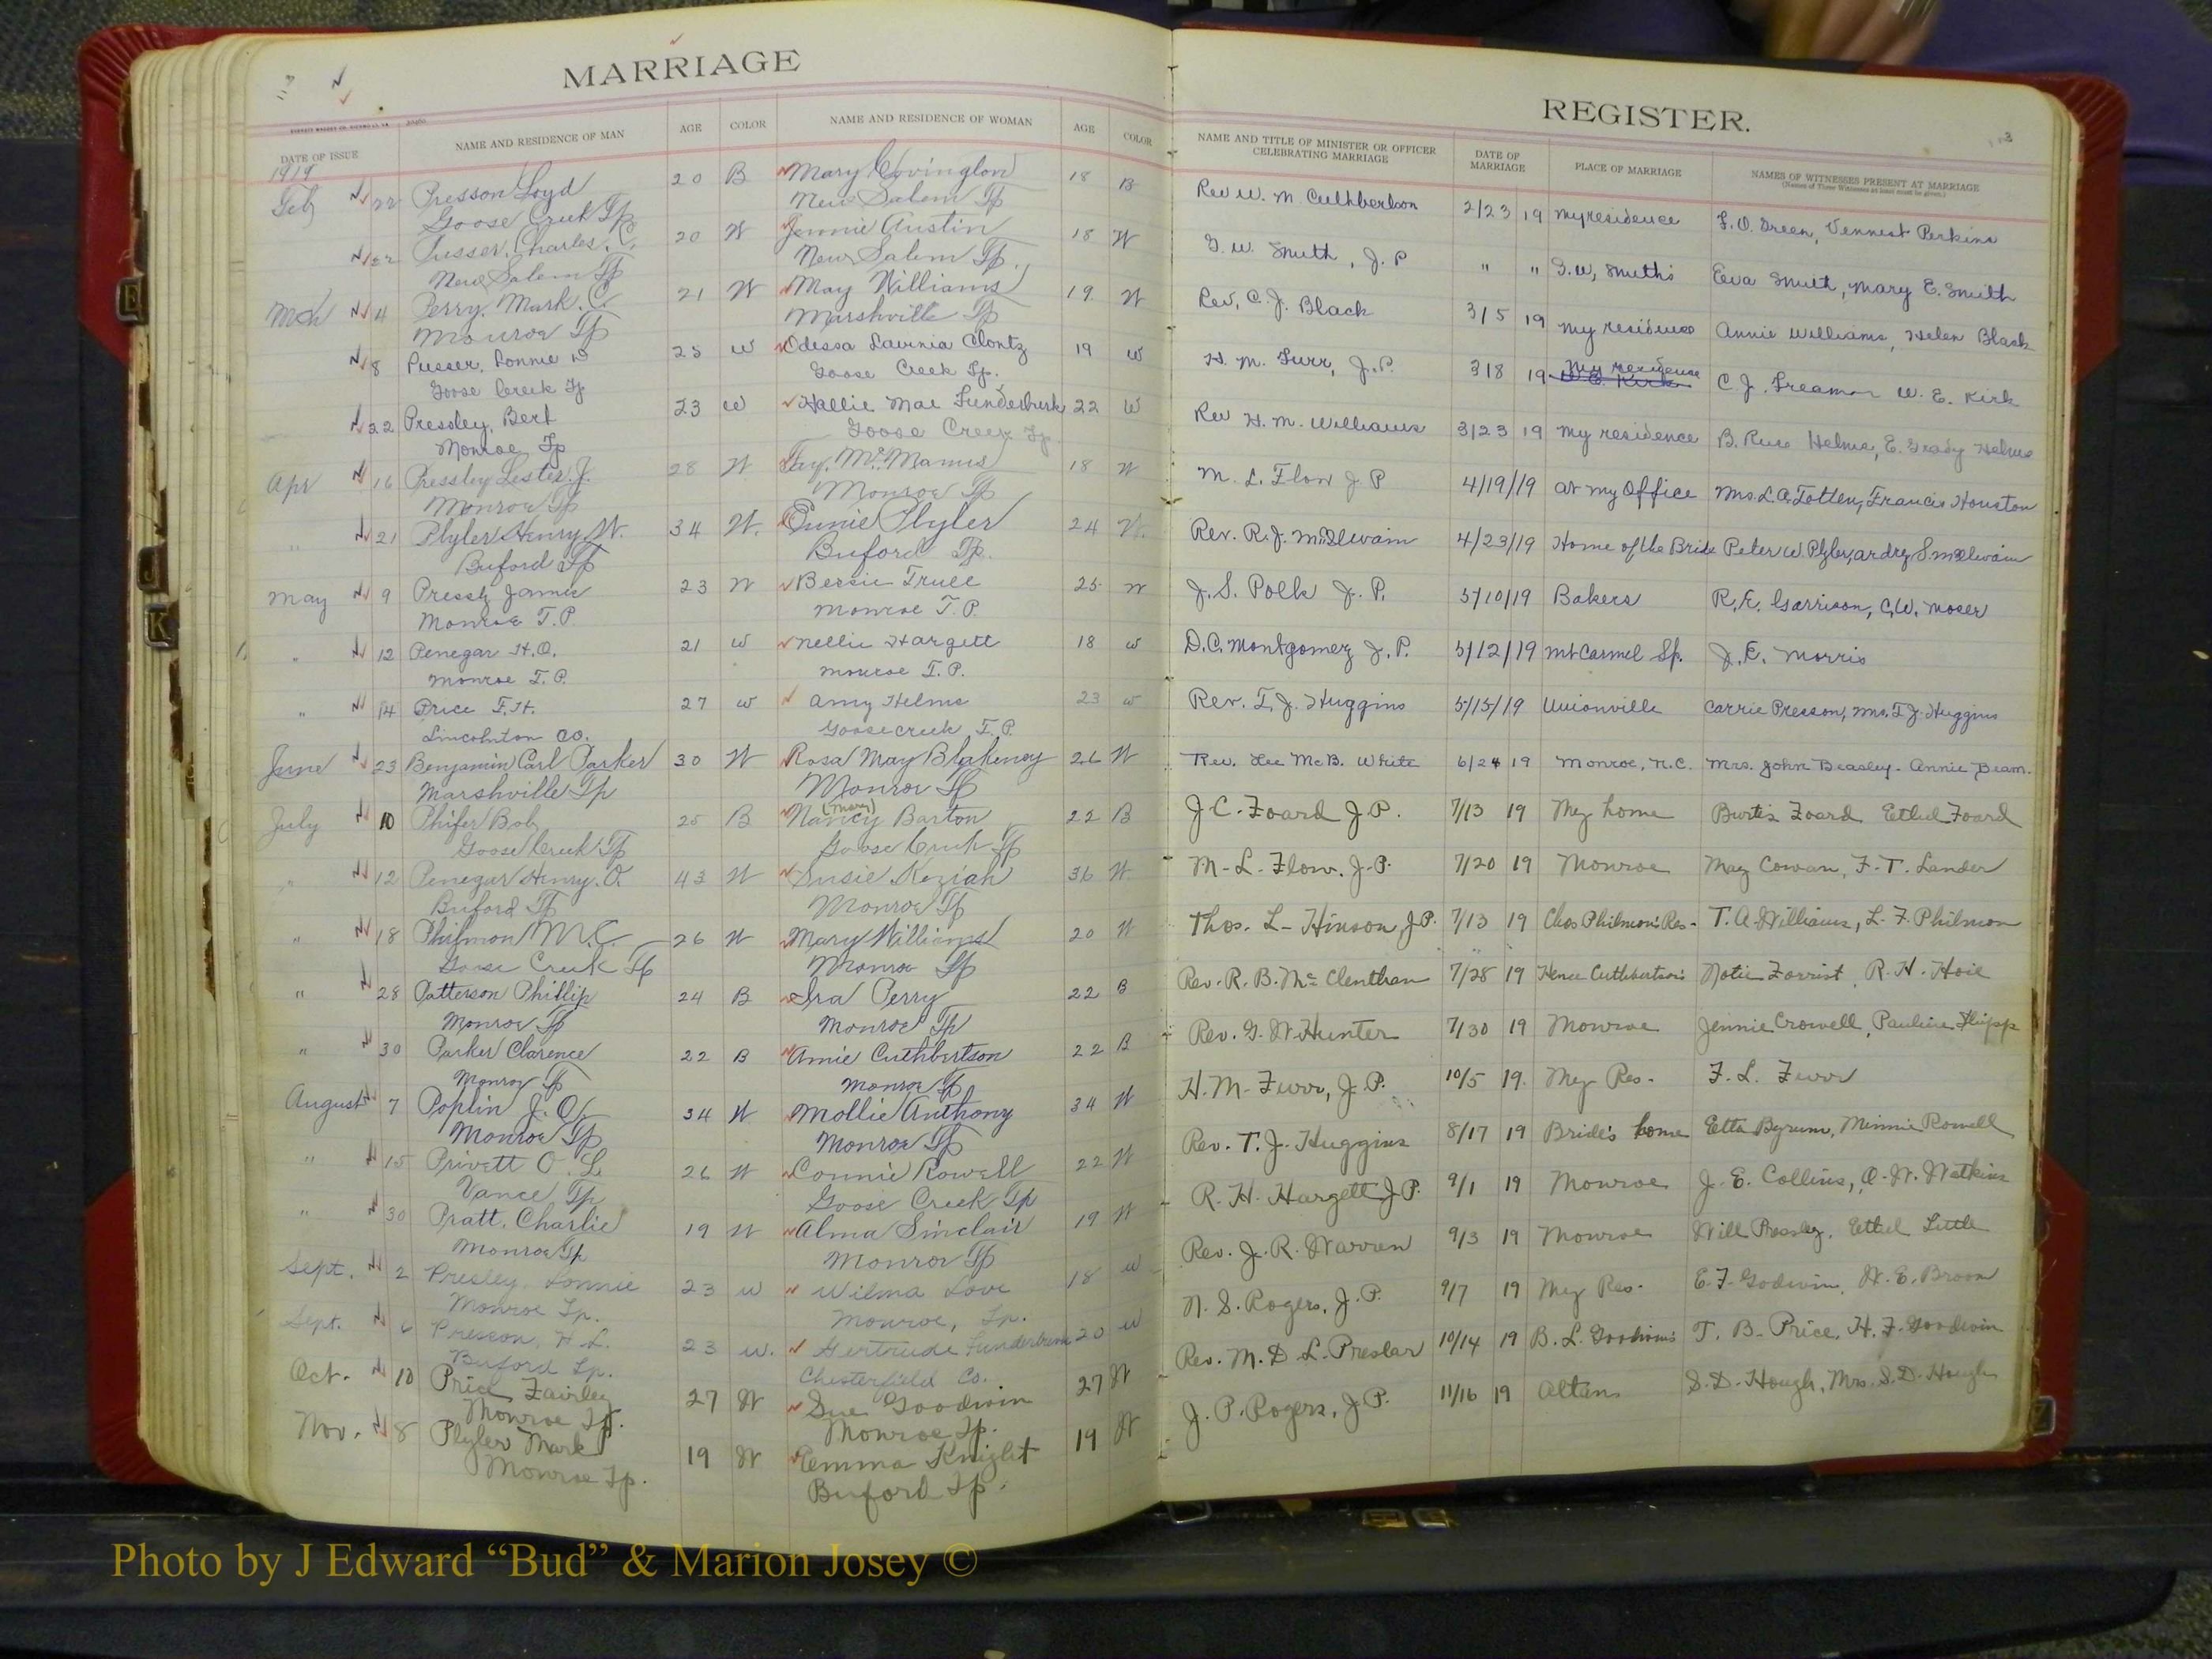 MARRIAGE
DATE OF ISSUE NAME AND RESIDENCE OF MAN AGE COLOR NAME AND RESIDENCE OF WOMAN AGE COLOR
1919
Feb 22 Presson Loyd 20 B Mary Covington 18 B
Goose Creek Tp New Salem Tp
22 Pusser, Charles. C. 20 W Jennie Austin 18 W
New Salem Tp New Salem Tp.
Mch 4 Perry, Mark. C. 21 W May Williams 19 W
Monroe Tp Marshville Tp
8 Pusser, Lonnie D 25 W Odessa Lavinia Clontz 19 W
Goose Creek Tp Goose Creek Tp.
22 Pressley, Bert 23 W Hallie Mae Funderburk 22 W
Monroe Tp Goose Creek Tp
Apr 16 Pressley Lester. J. 28 W Fay. McManus 18 W
Monroe Tp Monroe Tp
" 21 Plyler Henry. W. 34 W. Eunie Plyler 24 W.
Buford Tp Buford Tp.
May 9 Pressly James 23 W Bessie Trull 25 W
Monroe T.P. Monroe T.P.
" 12 Penegar H.O. 21 W Nellie Hargett 18 W
Monroe T.P. Monroe T.P.
" 14 Price F.H. 27 W Amy Helms 23 W
Lincolnton Co. Goosecreek T.P.
June 23 Benjamin Carl Parker 30 W Rosa May Blakeney 26 W
Marshville Tp Monroe Tp
(Mary)
July 10 Phifer Bob 25 B Nancy Barton 22 B
Goose Creek Tp Goose Creek Tp
" 12 Penegar Henry. O. 43 W Susie Keziah 36 W
Buford Tp Monroe Tp
" 18 Philmon M. C. 26 W Mary Williams 20 W
Goose Creek Tp Monroe Tp
" 28 Patterson Phillip 24 B Ira Perry 22 B
Monroe Tp Monroe Tp
" 30 Parker Clarence 22 B Amie Cuthbertson 22 B
Monroe Tp Monroe Tp
August 7 Poplin J. O. 34 W Mollie Anthony 34 W
Monroe Tp Monroe Tp
" 15 Privett O. L. 26 W Connie Rowell 22 W
Vance Tp Goose Creek Tp
" 30 Pratt, Charlie 19 W Alma Sinclair 19 W
Monroe Tp Monroe Tp
Sept. 2 Presley, Lonnie 23 W Wilma Love 18 W
Monroe Tp. Monroe, Tp.
Sept. 6 Presson, H. L. 23 W. Gertrude Funderburk 20 W
Buford Tp. Chesterfield Co.
Oct. 10 Price Fairley 27 W Sue Goodwin 27 W
Monroe Tp. Monroe Tp.
Nov. 8 Plyler Mark 19 W Emma Knight 19 W
Monroe Tp. Buford Tp.
REGISTER.
3
NAME AND TITLE OF MINISTER OR OFFICER CELEBRATING MARRIAGE DATE OF MARRIAGE PLACE OF MARRIAGE NAMES OF WITNESSES PRESENT AT MARRIAGE
(Names of Three Witnesses at least must be given.)
Rev W. M. Cuthbertson 2/23 19 My residence F. O. Green, Vennest Perkins
G. W. Smith, J. P " " G. W, Smith's Eva Smith, Mary E. Smith
Rev, C. J. Black 3/5 19 my residence Annie Williams, Helen Black
H. M. Furr, J. P. 3/8 19 My residence C. J. Freeman W. E. Kirk
W. E. Kirk
Rev H. M. Williams 3/23 19 my residence B. Ruse Helms, E. Grady Helms
M. L. Flow J. P 4/19/19 at my Office Mrs. L. A. Totten, Francis Houston
Rev. R. J. McIlwain 4/23/19 Home of the Bride Peter W. Plyler, Ardrey S. McIlwain
J. S. Polk J. P. 5/10/19 Bakers R. E. Garrison, C. W. Moser
D. C. Montgomery J. P. 5/12/19 Mt Carmel Sp. J. E. Morris
Rev. T. J. Huggins 5/15/19 Unionville Carrie Presson, Mrs. T J. Huggins
Rev. Lee McB. White 6/24 19 Monroe, N.C. Mrs. John Beasley. Annie Beam.
J. C. Foard J. P. 7/13 19 My home Burtis Foard Ethel Foard
M. L. Flow, J. P. 7/20 19 Monroe May Cowan, F. T. Lander
Thos. L. Hinson, J.P. 7/13 19 Chas Philmon's Res. T. A. Williams, L. F. Philmon
Rev. R. B. McClenthan 7/28 19 Hence Cuthbertson's Notie Forrist, R. H. Hoie
Rev. G. W. Hunter 7/30 19 Monroe Jennie Crowell, Pauline Flipp
H. M. Furr, J. P. 10/5 19. My Res. F. L. Furr
Rev. T. J. Huggins 8/17 19 Bride's home Etta Byrum, Minnie Rowell
R. H. Hargett J P. 9/1 19 Monroe J. E. Collins, O. W. Watkins
Rev. J. R. Warren 9/3 19 Monroe Will Presley, Ethel Little
N. S. Rogers, J. P. 9/7 19 My Res. E. F. Godwin, W. E. Broom
Rev. M. D. L. Preslar 10/14 19 B. L. Goodwin's T. B. Price, H. F. Goodwin
J. P. Rogers, J. P. 11/16 19 Altan S. D. Hough, Mrs. S. D. Hough
E
J
K
Z
Photo by J Edward “Bud” & Marion Josey ©